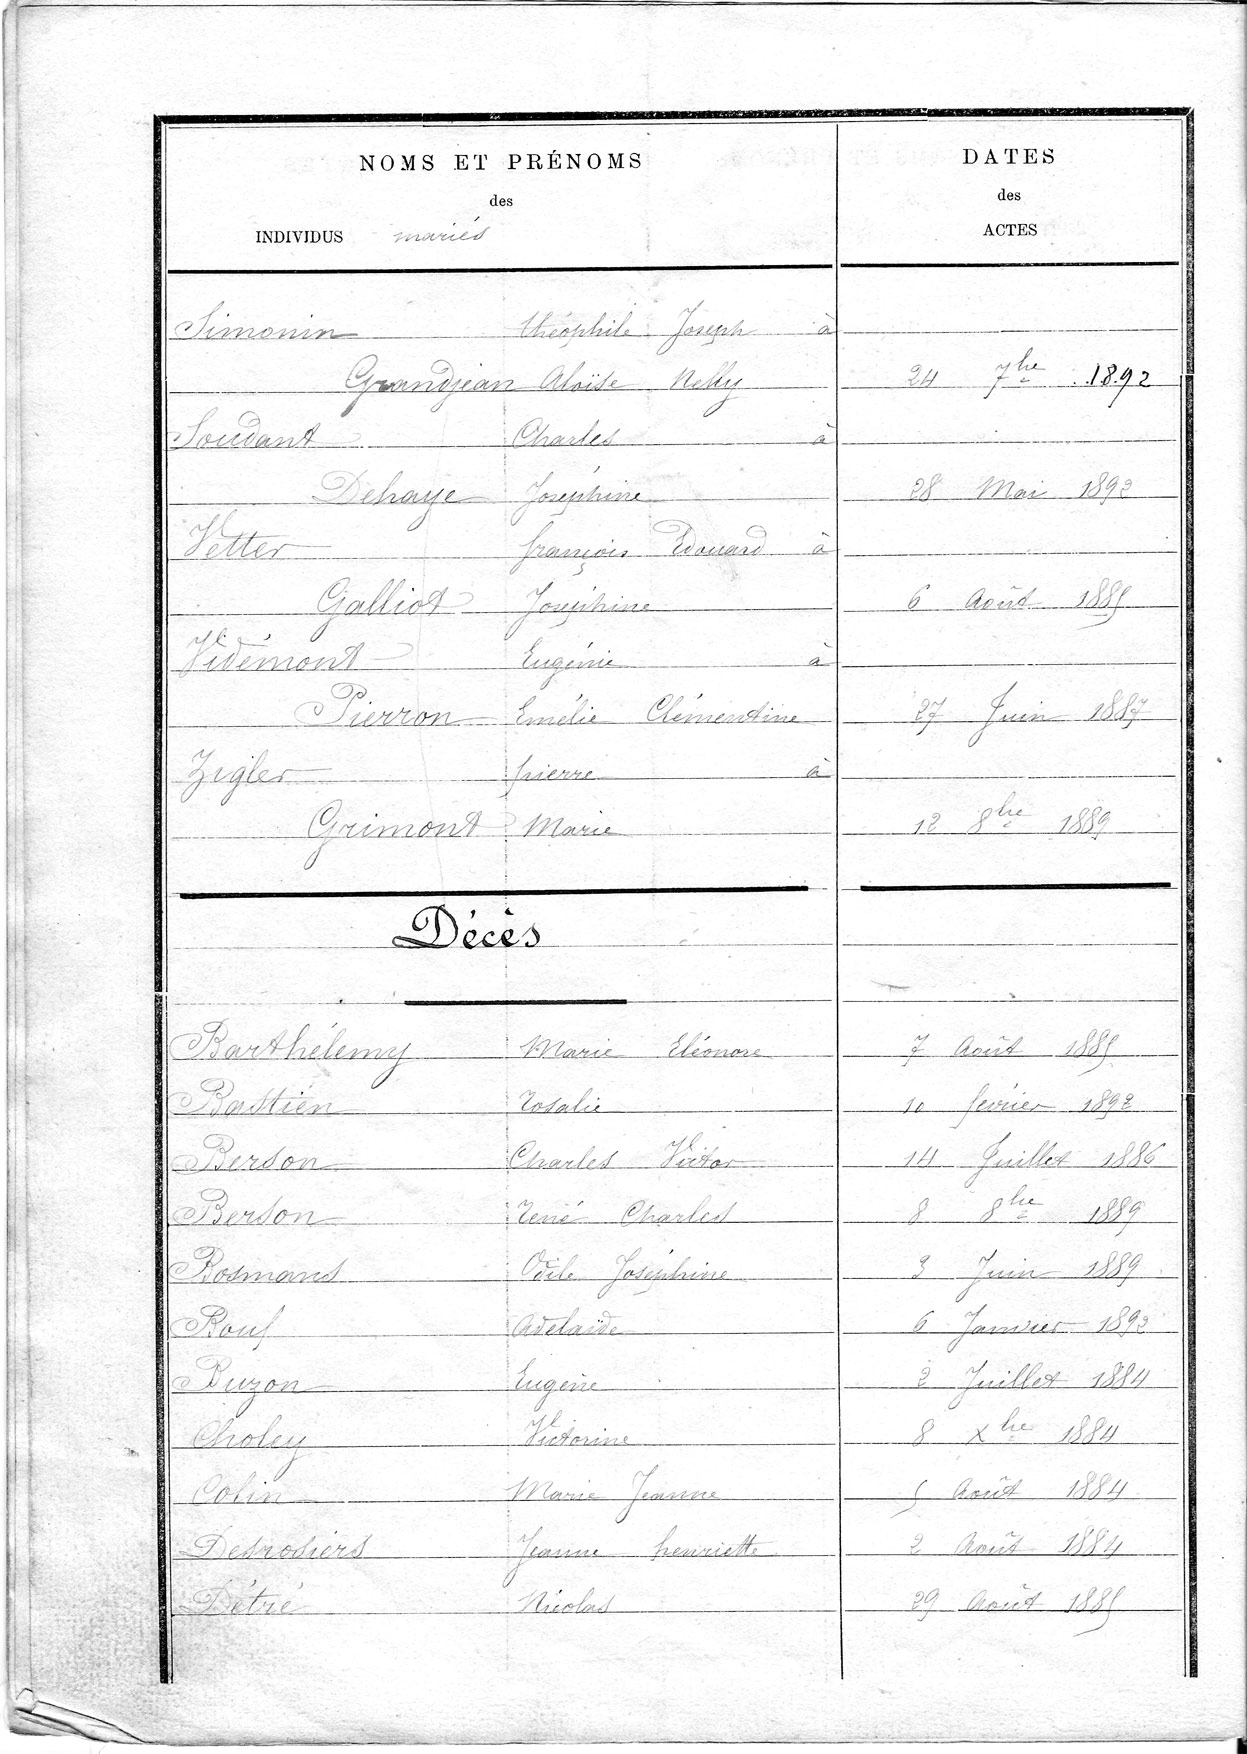 NOMS ET PRÉNOMS
des
INDIVIDUS mariés
DATES
des
ACTES
Simonin théophile Joseph à
Grandjean Aloïse Nelly 24 7bre 1892
Soudant Charles à
Dehaye Joséphine 28 Mai 1892
Vetter françois Edouard à
Galliot Joséphine 6 Août 1885
Vidémont Eugénie à
Pierron Emélie Clémentine 27 Juin 1887
Zigler pierre à
Grimont Marie 12 8bre 1889
Décès
Barthélemy Marie Eléonore 7 Août 1885
Bastien rosalie 10 février 1892
Berson Charles Victor 14 Juillet 1886
Berson rené Charles 8 8bre 1889
Bosmans Odile Joséphine 3 Juin 1889
Bouf Adelaïde 6 Janvier 1892
Buzon Eugène 2 Juillet 1884
Choley Victorine 8 xbre 1884
Colin Marie Jeanne 5 Août 1884
Desrosiers Jeanne henriette 2 Août 1884
Détré Nicolas 29 Août 1885